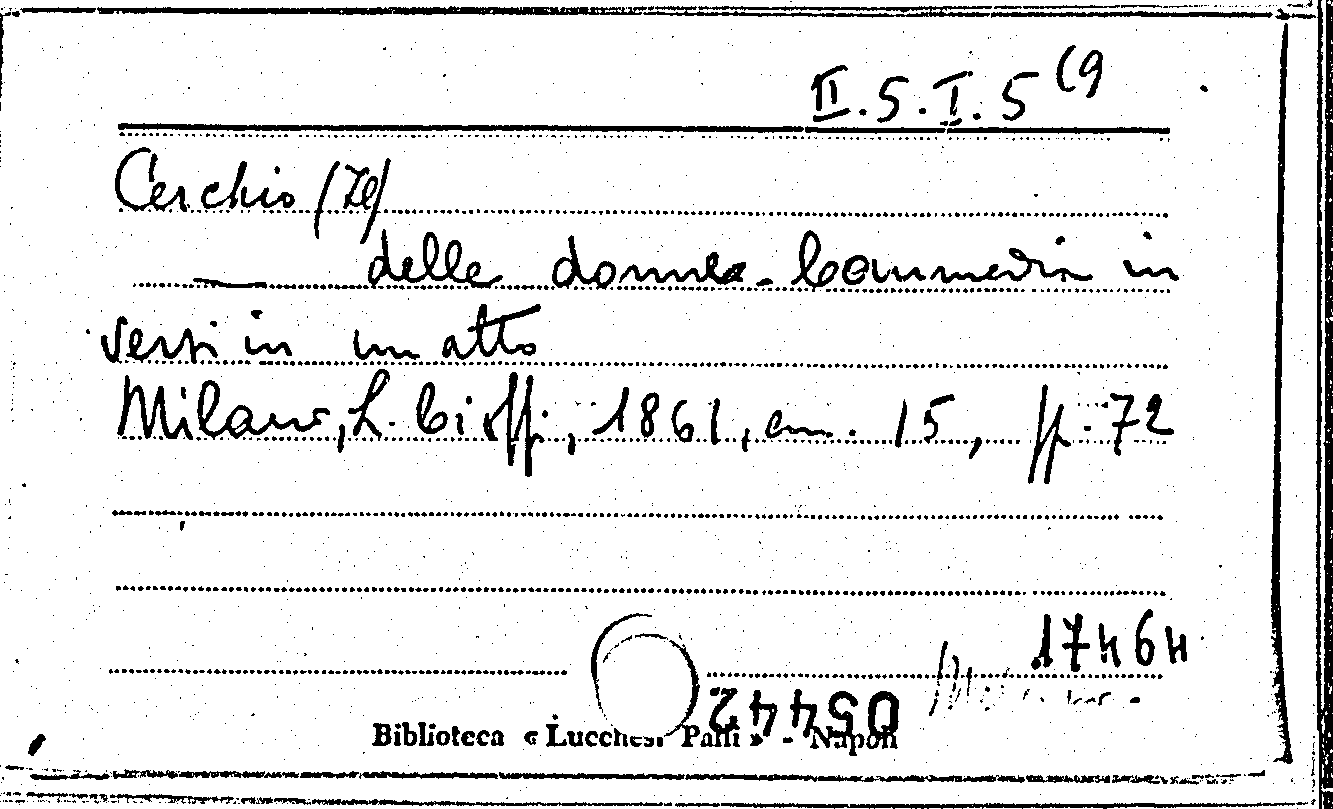 II.5.I.5 (9
Cerchio (Il)
— delle donne. Commedia in
versi in un atto
Milano, L. Cioffi, 1861, cm. 15, pp. 72
17464
05442
Biblioteca « Lucchesi Palli » - Napoli